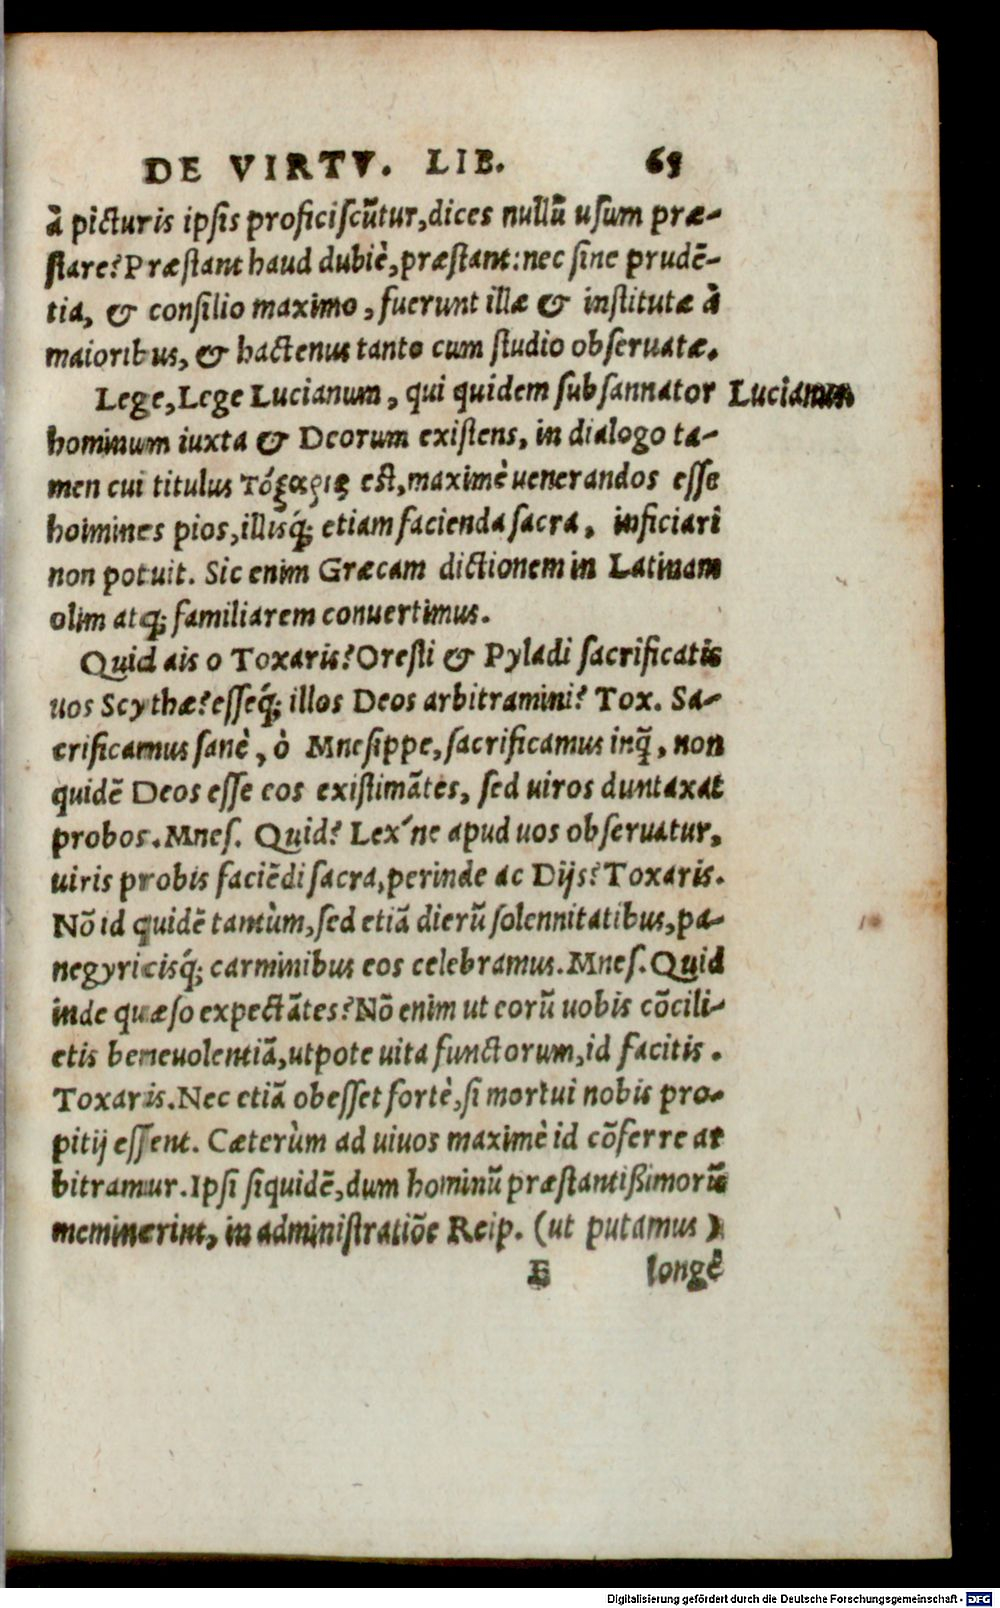 DE VIRTV. LIB. 65
à picturis ipsis proficiscũtur, dices nullũ usum præ-
stare? Præstant haud dubiè, præstant: nec sine prudẽ-
tia, & consilio maximo, fuerunt illæ & institutæ à
maioribus, & hactenus tanto cum studio obseruatæ.
Lege, Lege Lucianum, qui quidem subsannator
Lucianum
hominum iuxta & Deorum existens, in dialogo ta-
men cui titulus Τόξαρις est, maximè uenerandos esse
hoimines pios, illisq́; etiam facienda sacra, inficiari
non potuit. Sic enim Græcam dictionem in Latinam
olim atq; familiarem conuertimus.
Quid ais o Toxaris? Oresti & Pyladi sacrificatis
uos Scythæ? esseq́; illos Deos arbitramini? Tox. Sa-
crificamus sanè, ò Mnesippe, sacrificamus inq̃, non
quidẽ Deos esse eos existimãtes, sed uiros duntaxat
probos. Mnes. Quid? Lex´ne apud uos obseruatur,
uiris probis faciẽdi sacra, perinde ac Dijs? Toxaris.
Nõ id quidẽ tantùm, sed etiã dierũ solennitatibus, pa-
negyricisq́; carminibus eos celebramus. Mnes. Quid
inde quæso expectãtes? Nõ enim ut eorũ uobis cõcili-
etis beneuolentiã, utpote uita functorum, id facitis.
Toxaris. Nec etiã obesset fortè, si mortui nobis pro-
pitij essent. Cæterùm ad uiuos maximè id cõferre ar
bitramur. Ipsi siquidẽ, dum hominũ præstantißimorũ
meminerint, in administratiõe Reip. (ut putamus)
E longè
Digitalisierung gefördert durch die Deutsche Forschungsgemeinschaft - DFG